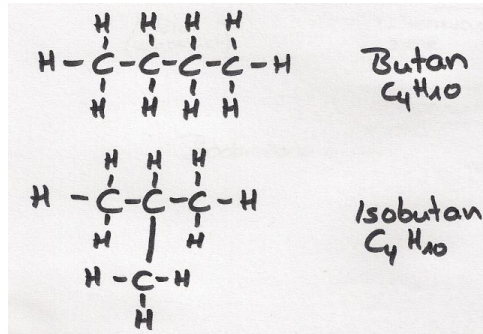 H H H H
H-C-C-C-C-H
H H H H
Butan
C4H10
H H H
H-C-C-C-H
H H
H-C-H
H
Isobutan
C4H10